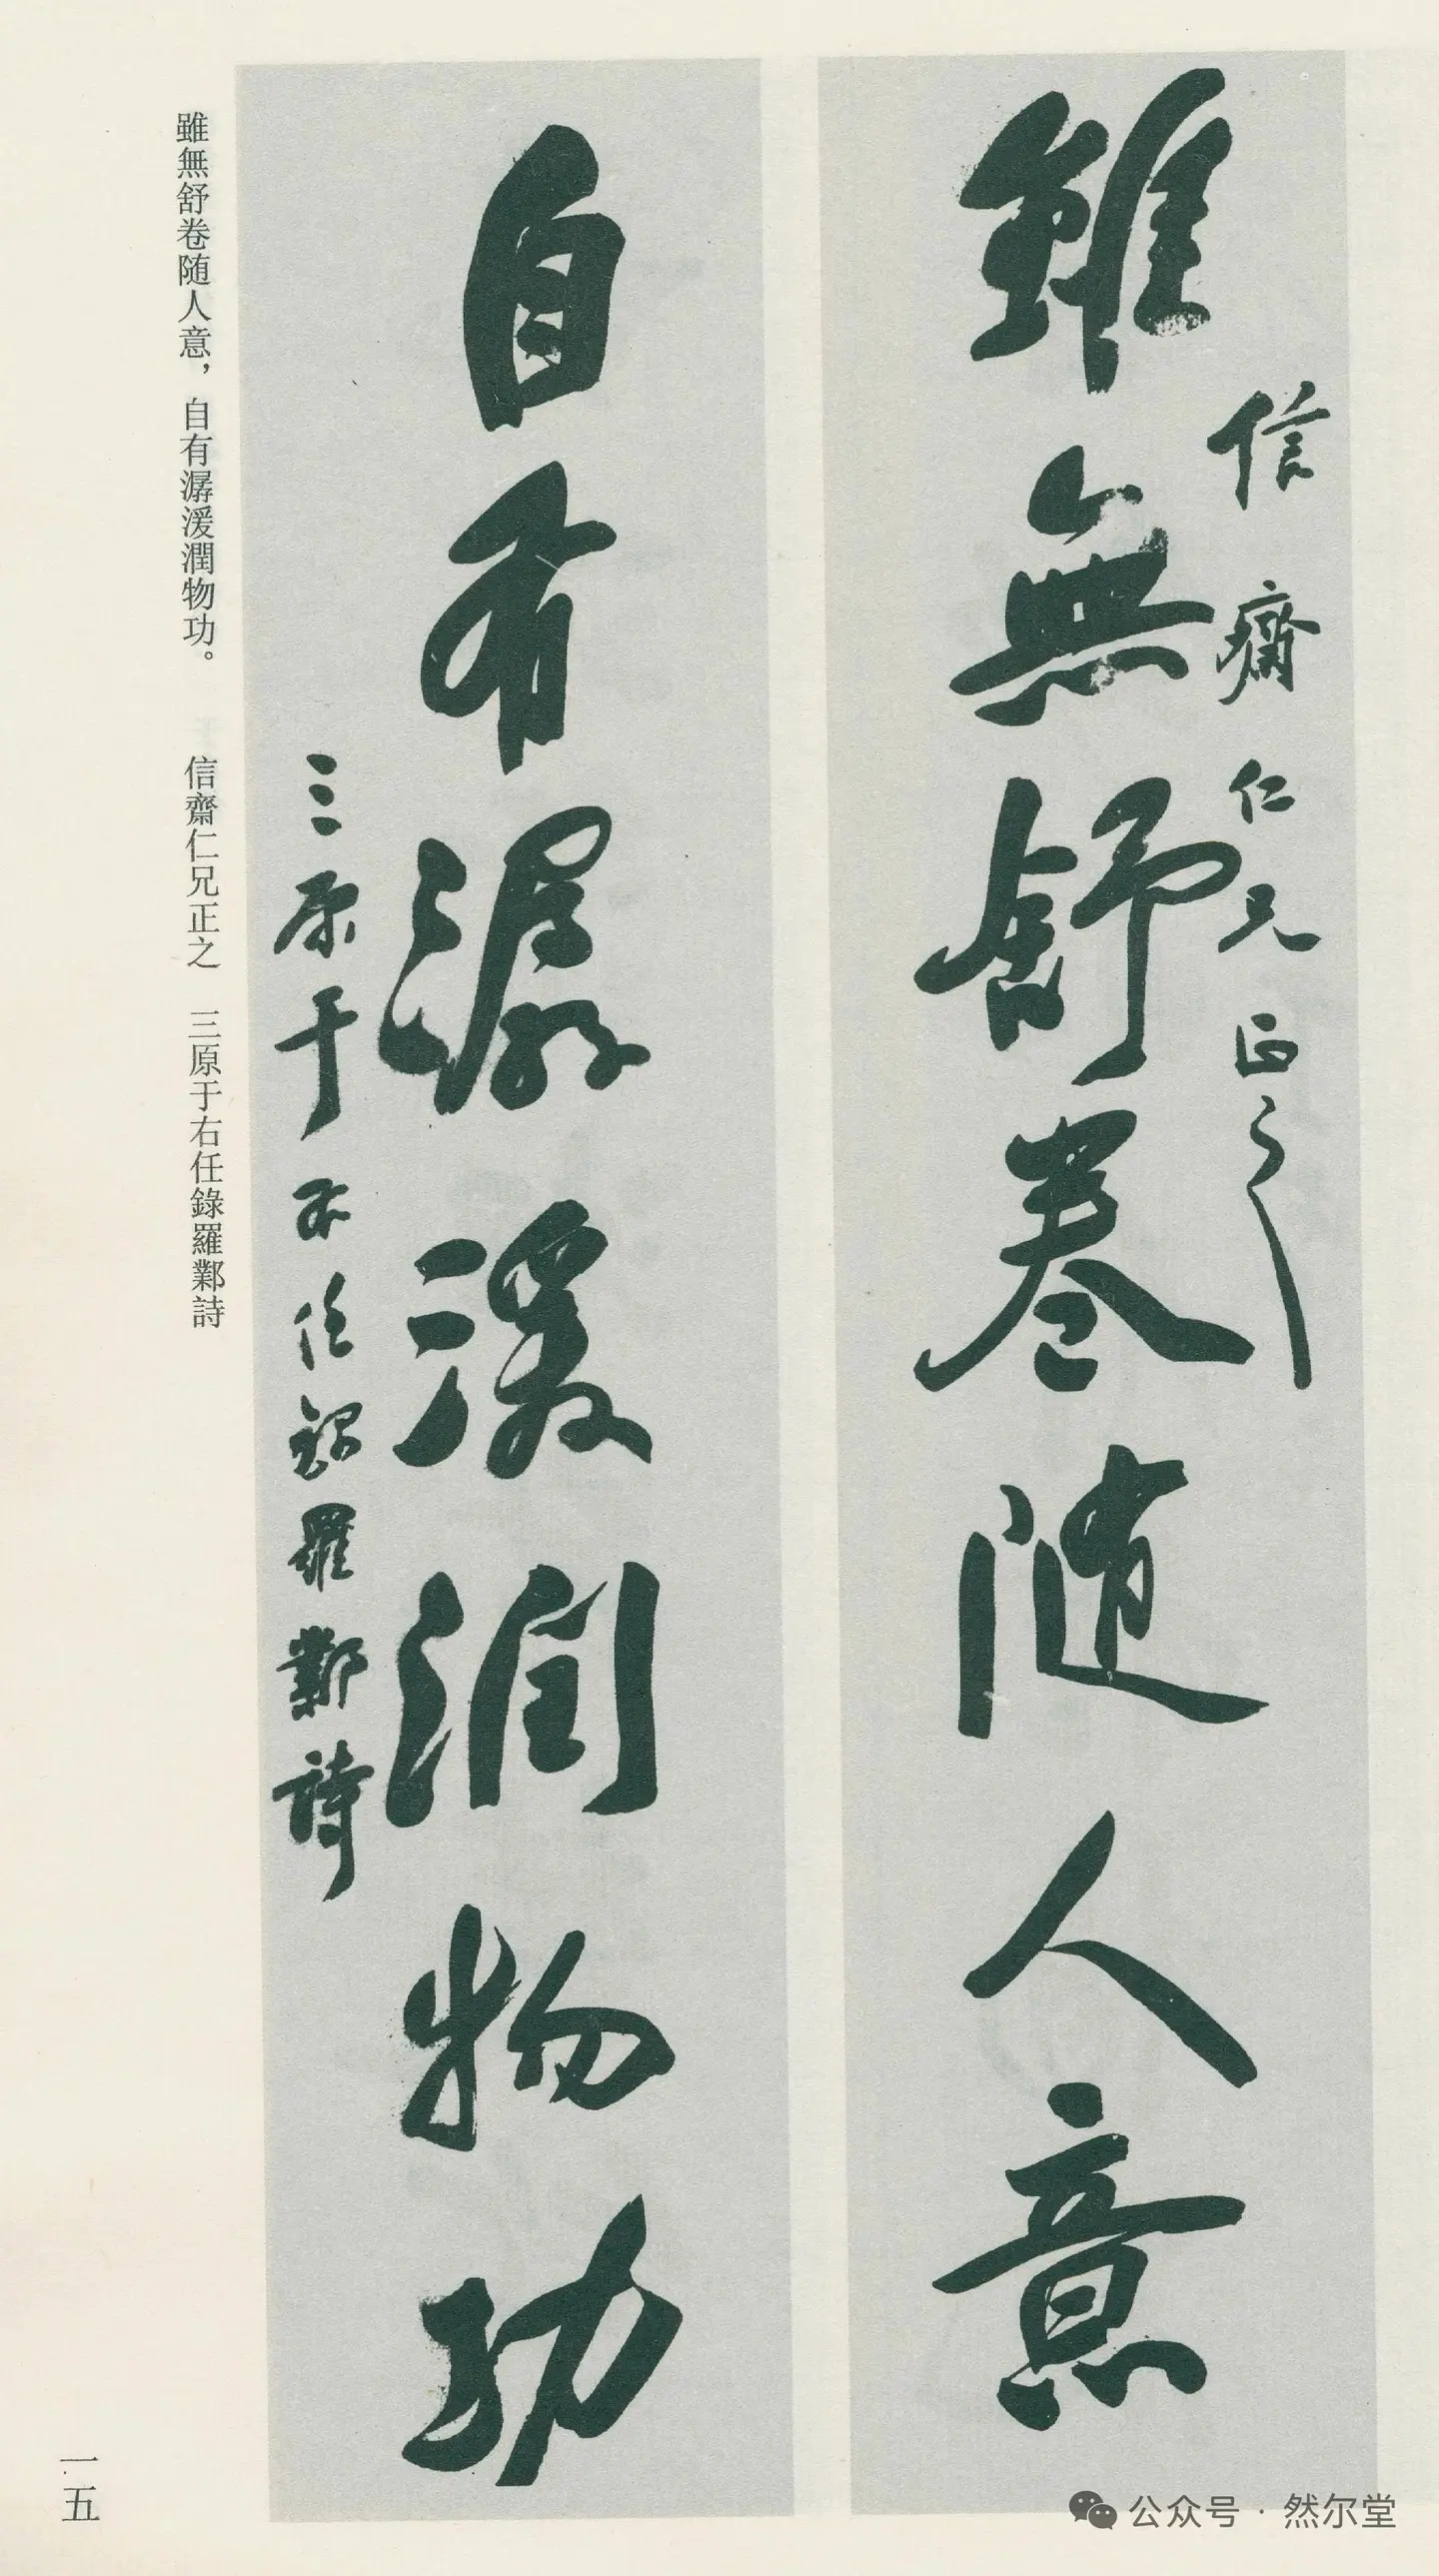 雖無舒卷随人意
信齋仁兄正之
自有潺湲潤物功
三原于右任錄羅鄴詩
雖無舒卷随人意，自有潺湲潤物功。　信齋仁兄正之　三原于右任錄羅鄴詩
一五
公众号 · 然尔堂